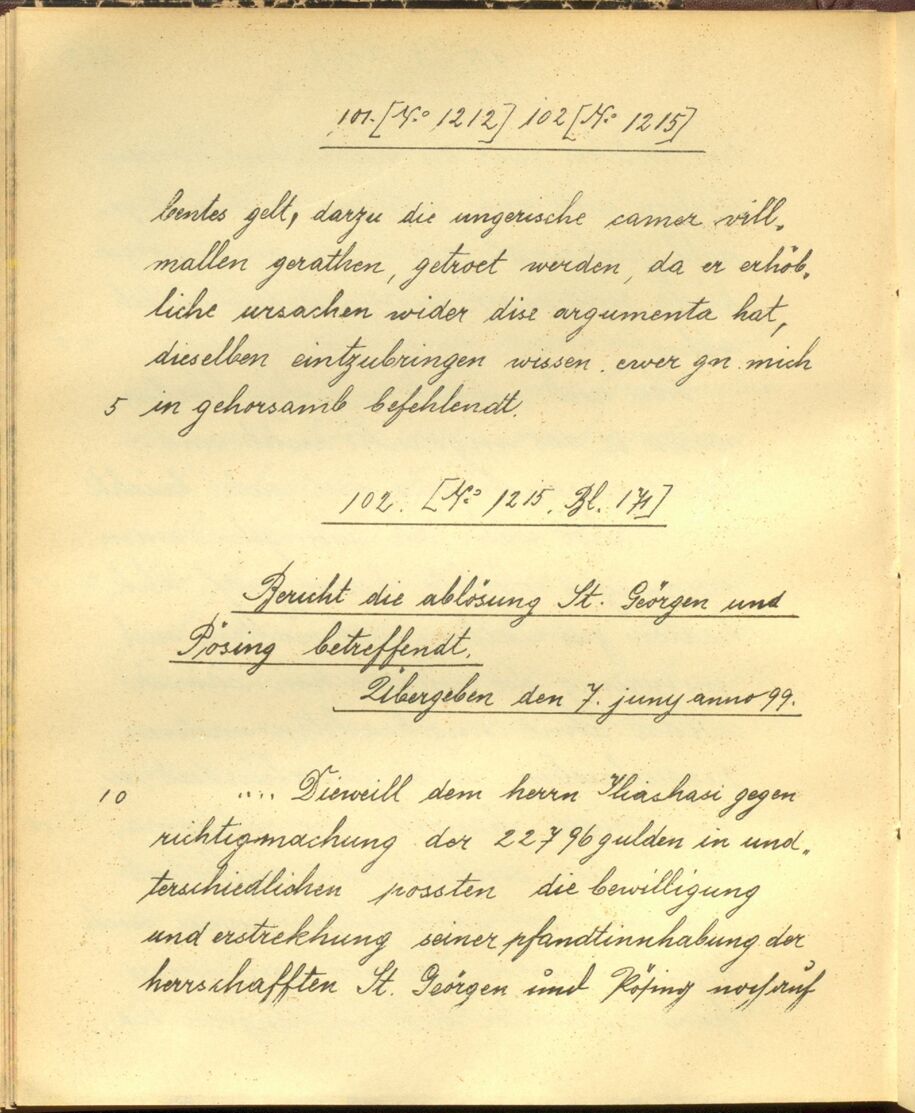 101. [No 1212] 102 [No 1215]
bentes gelt, darzu die ungerische camer vill-
mallen gerathen, getroet werden, da er erhöb-
liche ursachen wider dise argumenta hat,
dieselben eintzubringen wissen. ewer gn. mich
5 in gehorsamb befehlendt.
102. [No 1215. Bl. 171]
Bericht die ablösung St. Geörgen und
Pösing betreffendt.
Übergeben den 7. juny anno 99.
10 .... Dieweill dem herrn Iliashasi gegen
richtigmachung der 22796 gulden in und-
terschiedlichen possten die bewilligung
und erstrekhung seiner pfandtinnhabung der
herrschafften St. Geörgen und Pösing noch auf